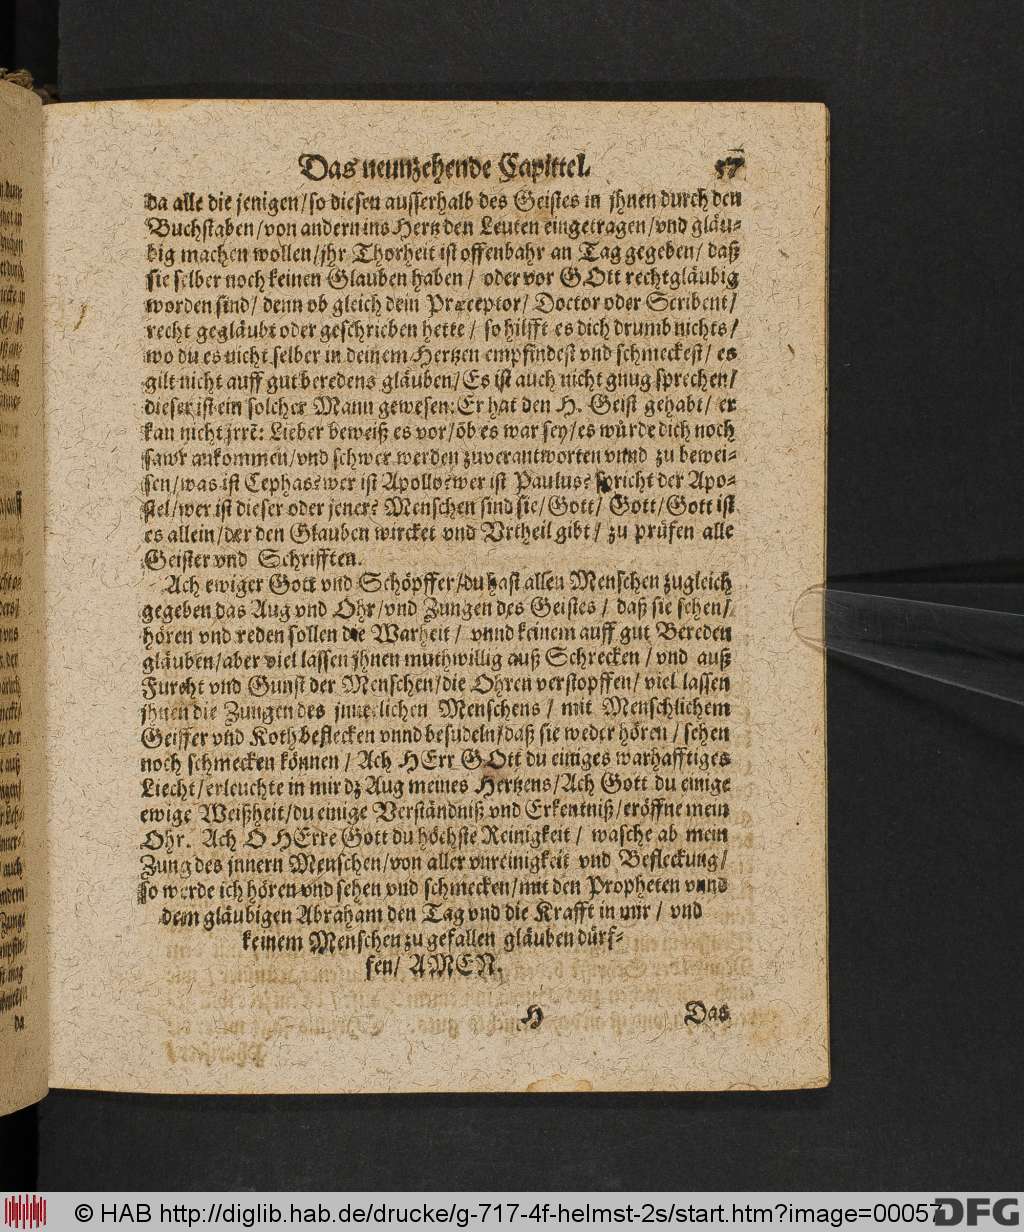 Das neunzehende Capittel. 57
da alle die jenigen/so diesen ausserhalb des Geistes in jhnen durch den
Buchstaben/von andern ins Hertz den Leuten eingetragen/vnd gläu-
big machen wollen/jhr Thorheit ist offenbahr an Tag gegeben/ daß
sie selber noch keinen Glauben haben / oder vor GOtt rechtgläubig
worden sind/ denn ob gleich dein Præceptor/ Doctor oder Scribent/
recht gegläubt oder geschrieben hette / so hilfft es dich drumb nichts/
wo du es nicht selber in deinem Hertzen empfindest vnd schmeckest/ es
gilt nicht auff gut beredens gläuben/Es ist auch nicht gnug sprechen/
dieser ist ein solcher Mann gewesen: Er hat den H. Geist gehabt/ er
kan nicht jrrē: Lieber beweiß es vor/ob es war sey/es würde dich noch
sawr ankommen/vnd schwer werden zuverantworten vnnd zu bewei-
sen/was ist Cephas? wer ist Apollo? wer ist Paulus? spricht der Apo-
stel/wer ist dieser oder jener? Menschen sind sie/Gott/ Gott/Gott ist
es allein/der den Glauben wircket vnd Vrtheil gibt/ zu prüfen alle
Geister vnd Schrifften.
Ach ewiger Gott vnd Schöpffer/du hast allen Menschen zugleich
gegeben das Aug vnd Ohr/vnd Zungen des Geistes / daß sie sehen/
hören vnd reden sollen die Warheit / vnnd keinem auff gut Bereden
gläuben/aber viel lassen jhnen muthwillig auß Schrecken / vnd auß
Furcht vnd Gunst der Menschen/die Ohren verstopffen/ viel lassen
jhnen die Zungen des jnnerlichen Menschens / mit Menschlichem
Geiffer vnd Koth beflecken vnnd besudeln/daß sie weder hören / sehen
noch schmecken können / Ach HErr GOtt du einiges warhafftiges
Liecht/erleuchte in mir dz Aug meines Hertzens/Ach Gott du einige
ewige Weißheit/du einige Verständniß vnd Erkentniß/eröffne mein
Ohr. Ach O HErre Gott du höchste Reinigkeit / wasche ab mein
Zung des jnnern Menschen/von aller vnreinigkeit vnd Befleckung/
so werde ich hören vnd sehen vnd schmecken/mit den Propheten vnnd
dem gläubigen Abraham den Tag vnd die Krafft in mir / vnd
keinem Menschen zu gefallen gläuben dürf-
fen/ AMEN.
H Das
© HAB http://diglib.hab.de/drucke/g-717-4f-helmst-2s/start.htm?image=00057
DFG